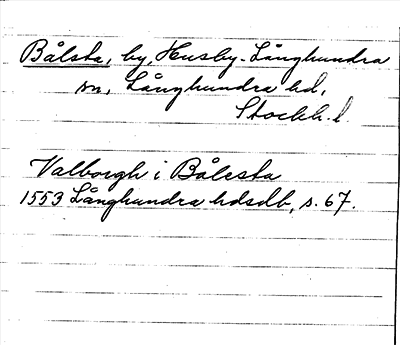 Bålsta, by, Husby-Långhundra
sn, Långhundra hd,
Stockh. l.
Valborgh i Bålesta
1553 Långhundra hdsdb, s. 67.